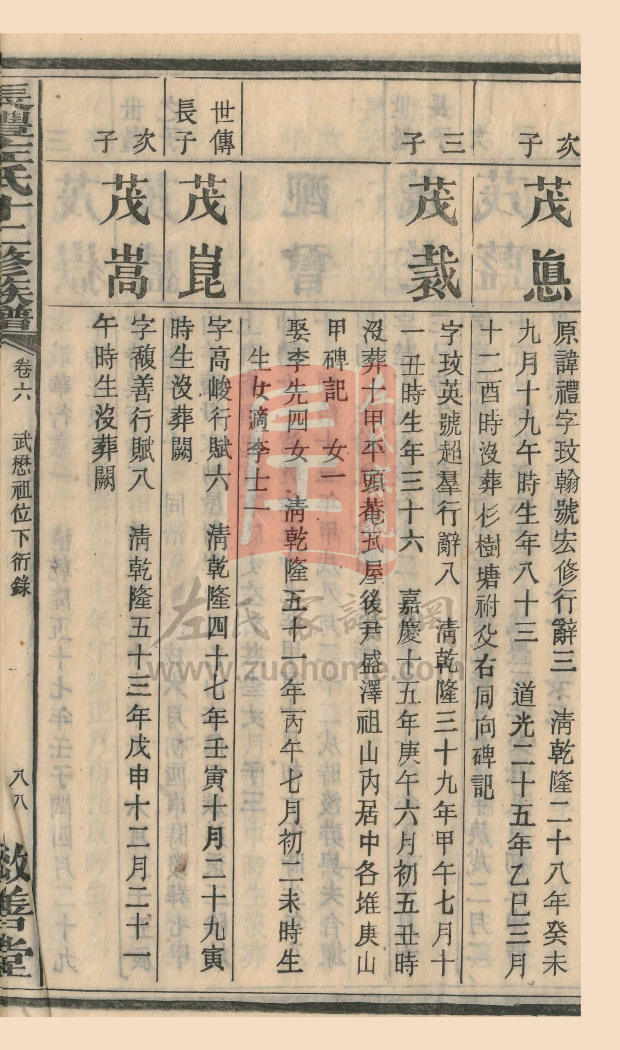 次子
茂惪
原諱禮字玟翰號宏修行辭三 清乾隆二十八年癸未
九月十九午時生年八十三 道光二十五年乙巳三月
十二酉時沒葬杉樹塘祔父右同向碑記
三子
茂裁
字玟英號超羣行辭八 清乾隆三十九年甲午七月十
一丑時生年三十六 嘉慶十五年庚午六月初五丑時
沒葬十甲平頭菴弍屋後尹盛澤祖山內居中各堆庚山
甲碑記 女一
娶李先四女 清乾隆五十一年丙午七月初二未時生
生女適李士一
世傳長子
茂崑
字高峻行賦六 清乾隆四十七年壬寅十月二十九寅
時生沒葬闕
次子
茂嵩
字馥善行賦八 清乾隆五十三年戊申十二月二十一
午時生沒葬闕
長澧左氏十二修族譜
卷六 武懋祖位下衍錄
八八
敬善堂
左氏家譜網
www.zuohome.com